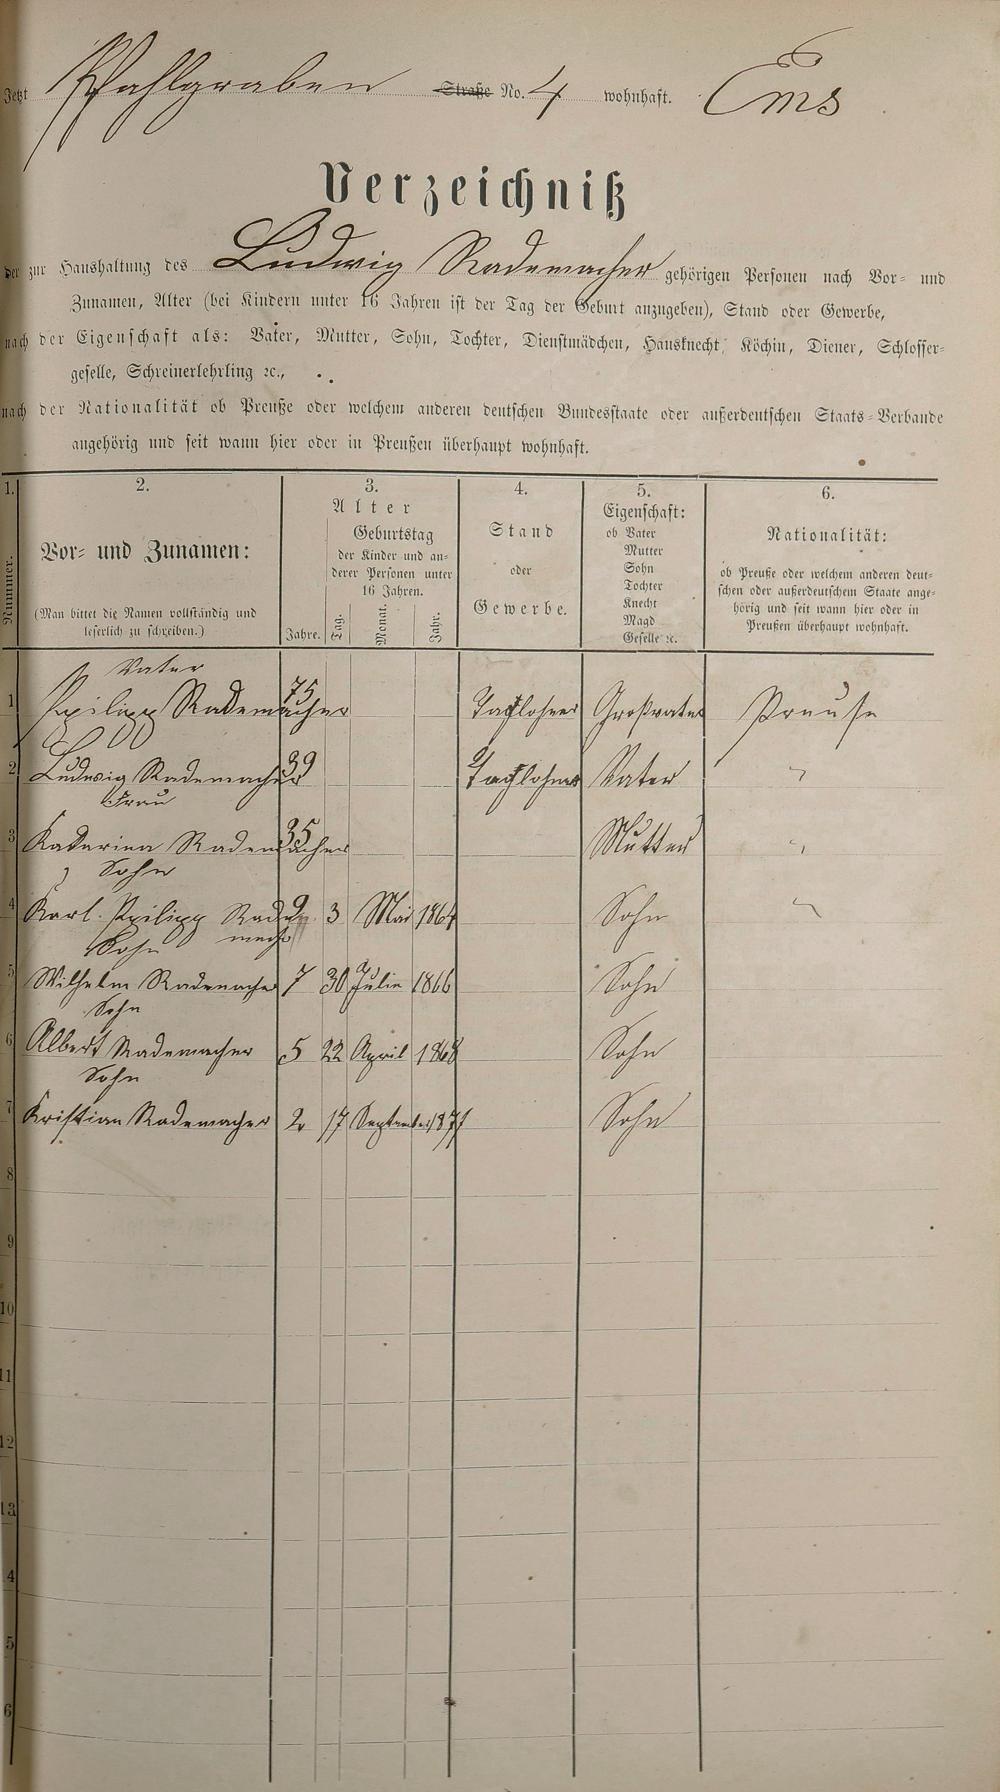 Jetzt Pfahlgraben Straße No. 4 wohnhaft. Ems
Verzeichniß
der zur Haushaltung des Ludwig Rademacher gehörigen Personen nach Vor- und
Zunamen, Alter (bei Kindern unter 16 Jahren ist der Tag der Geburt anzugeben), Stand oder Gewerbe,
nach der Eigenschaft als: Vater, Mutter, Sohn, Tochter, Dienstmädchen, Hausknecht, Köchin, Diener, Schlosser-
geselle, Schreinerlehrling ꝛc.,
nach der Nationalität ob Preuße oder welchem anderen deutschen Bundesstaate oder außerdeutschen Staats-Verbande
angehörig und seit wann hier oder in Preußen überhaupt wohnhaft.
1. 2. 3. 4. 5. 6.
Nummer.
Vor- und Zunamen:
(Man bittet die Namen vollständig und
leserlich zu schreiben.)
Alter
Jahre.
Geburtstag
der Kinder und an-
derer Personen unter
16 Jahren.
Tag. Monat. Jahr.
Stand
oder
Gewerbe.
Eigenschaft:
ob Vater
Mutter
Sohn
Tochter
Knecht
Magd
Geselle ꝛc.
Nationalität:
ob Preuße oder welchem anderen deut-
schen oder außerdeutschem Staate ange-
hörig und seit wann hier oder in
Preußen überhaupt wohnhaft.
Vater
1 Philipp Rademacher 75 Taglohner Großvater Preuse
2 Ludwig Rademacher 39 Taglohner Vater "
Frau
3 Katarina Rademacher 35 Mutter "
Sohn
4 Karl Philipp Rade 9 3 Mai 1864 Sohn "
macher
Sohn
5 Wilhelm Rademacher 7 30 Julie 1866 Sohn
Sohn
6 Albert Rademacher 5 22 April 1868 Sohn
Sohn
7 Kristian Rademacher 2 17 September 1871 Sohn
8
9
10
11
12
13
4
5
6